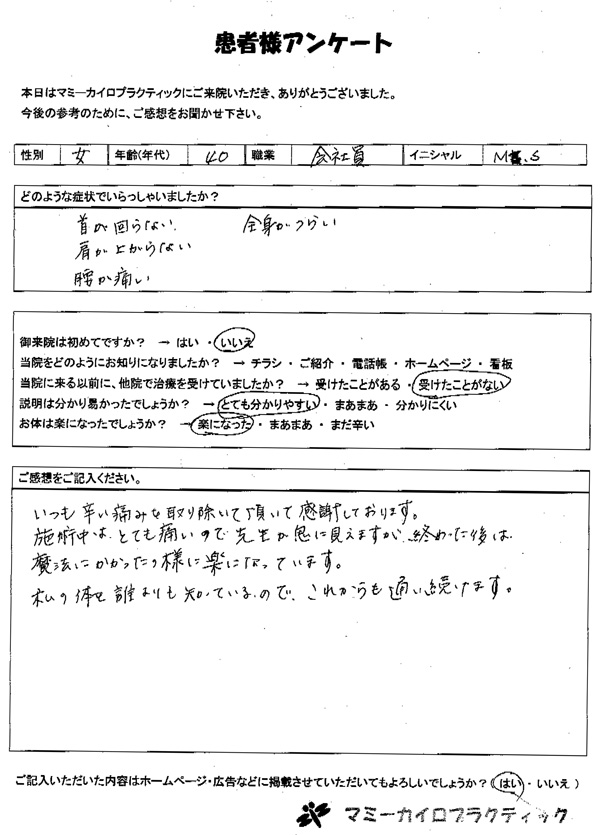 患者様アンケート
本日はマミーカイロプラクティックにご来院いただき、ありがとうございました。
今後の参考のために、ご感想をお聞かせ下さい。
性別 女 年齢(年代) 40 職業 会社員 イニシャル M S
どのような症状でいらっしゃいましたか？
首が回らない 全身がつらい
肩が上がらない
腰が痛い
御来院は初めてですか？ → はい ・ いいえ
当院をどのようにお知りになりましたか？ → チラシ ・ ご紹介 ・ 電話帳 ・ ホームページ ・ 看板
当院に来る以前に、他院で治療を受けていましたか？ → 受けたことがある ・ 受けたことがない
説明は分かり易かったでしょうか？ → とても分かりやすい ・ まあまあ ・ 分かりにくい
お体は楽になったでしょうか？ → 楽になった ・ まあまあ ・ まだ辛い
ご感想をご記入ください。
いつも辛い痛みを取り除いて頂いて感謝しております。
施術中は、とても痛いので先生が鬼に見えますが、終わった後は
魔法にかかったの様に楽になっています。
私の体を誰よりも知っているので、これからも通い続けます。
ご記入いただいた内容はホームページ・広告などに掲載させていただいてもよろしいでしょうか？( はい ・ いいえ )
マミーカイロプラクティック